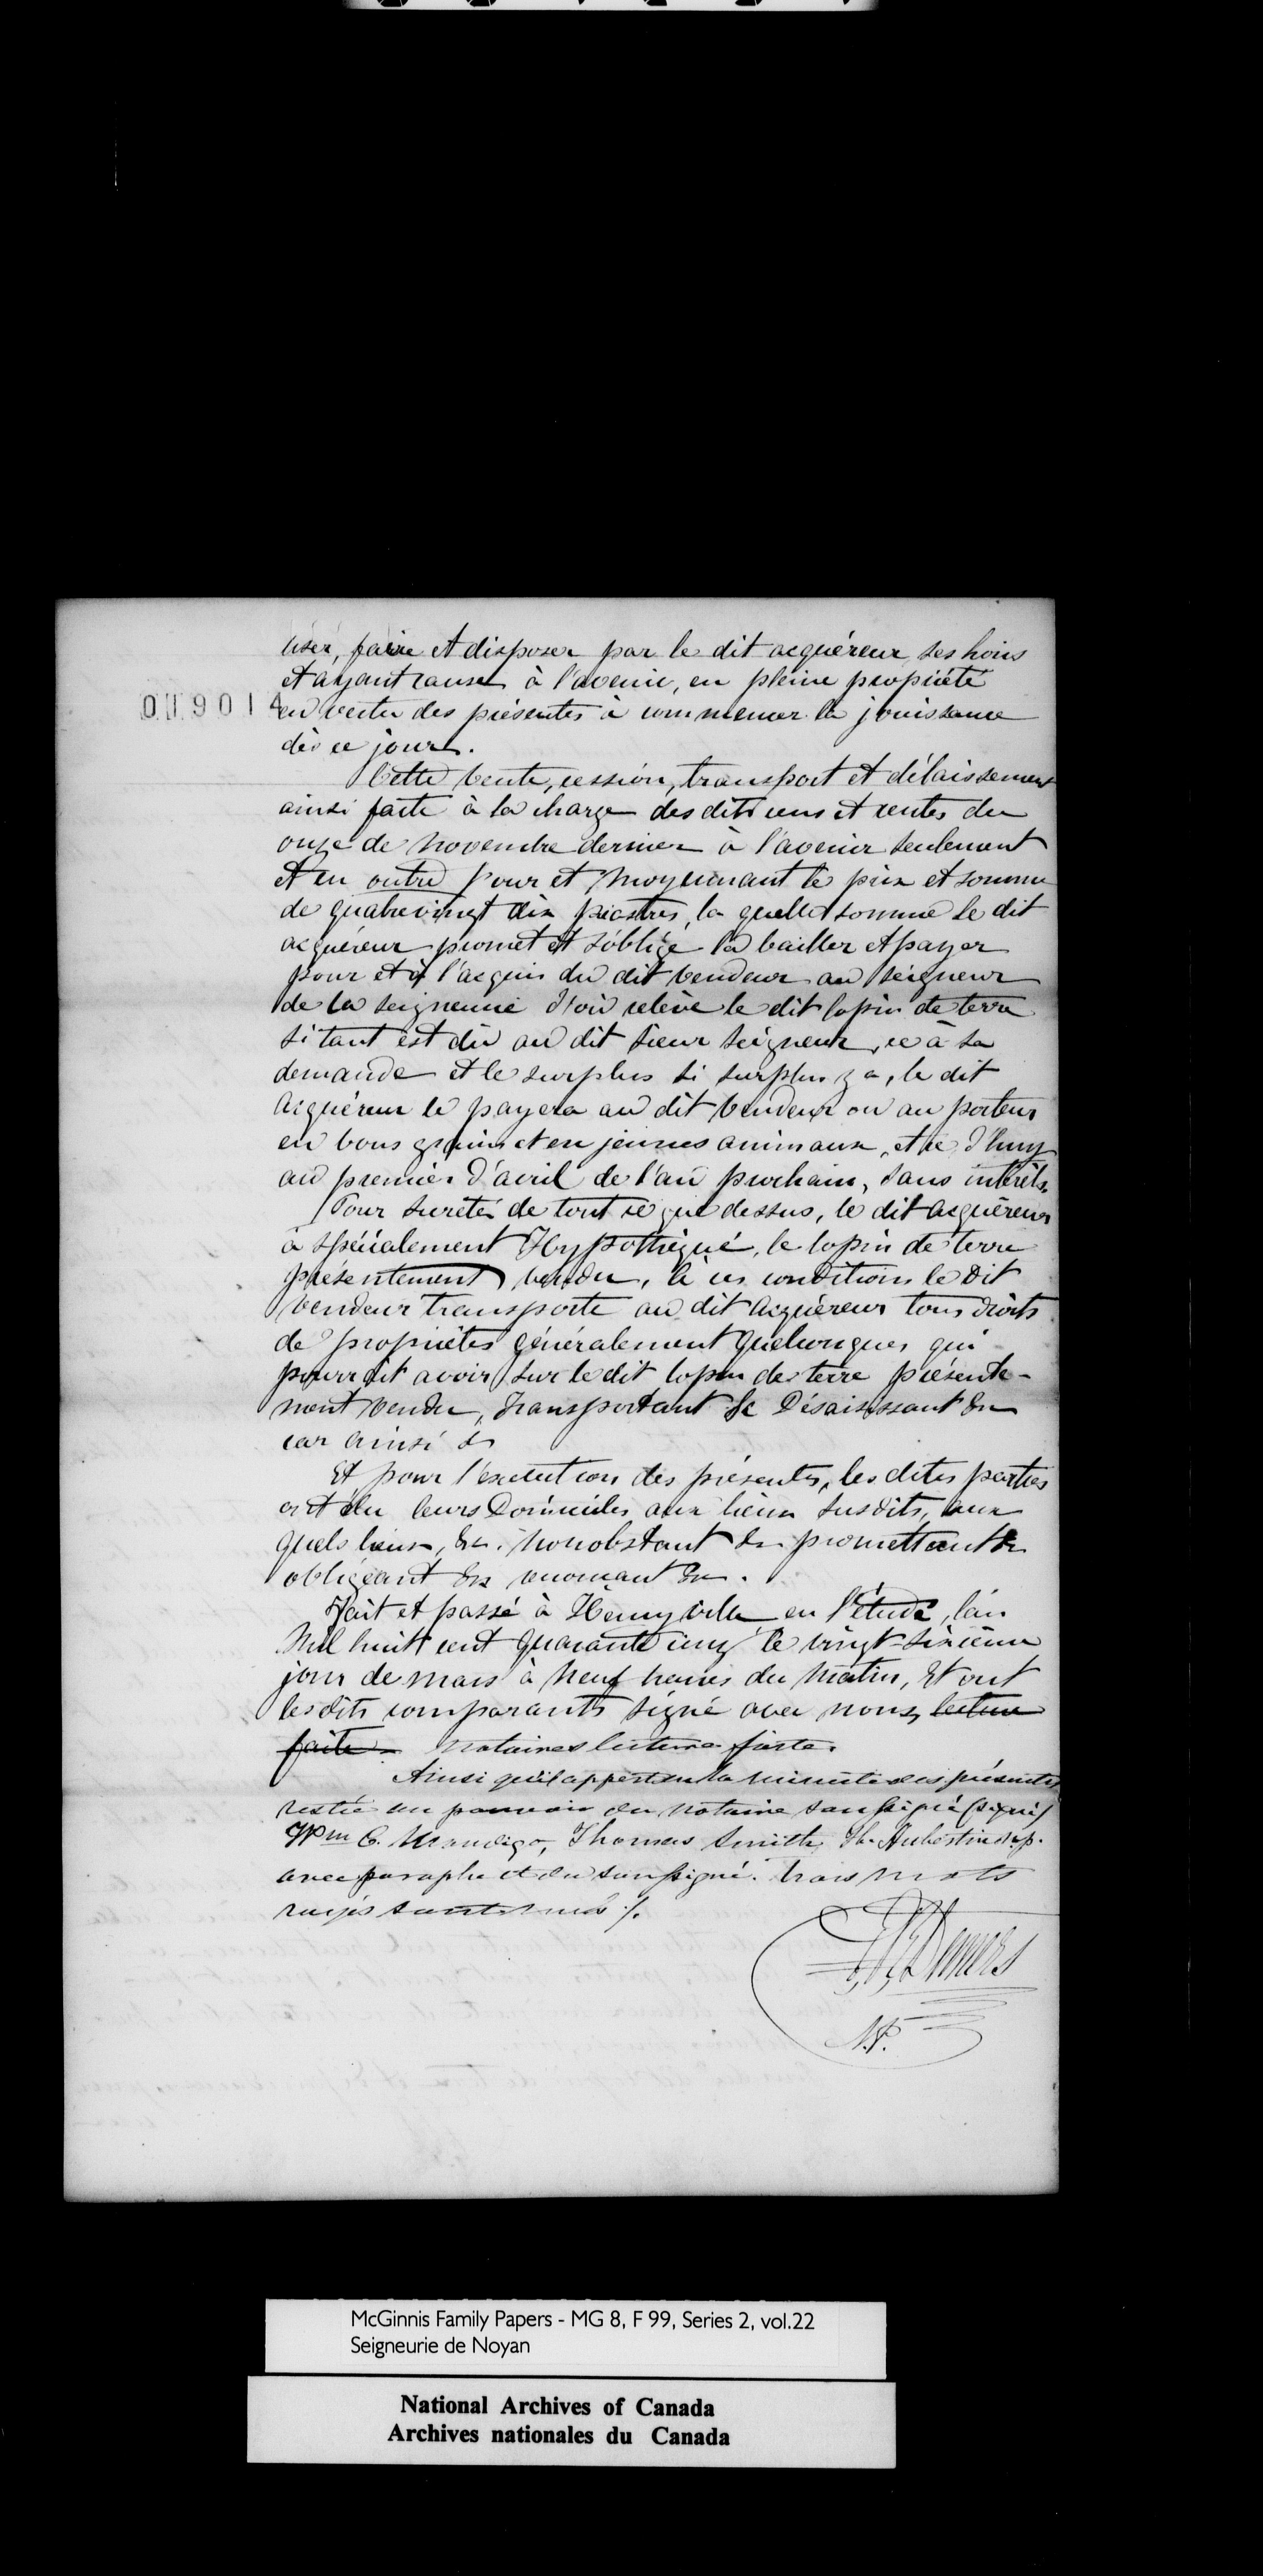 user, faire et disposer par le dit acquéreur, ses hoirs
et ayant cause à l'avenir, en pleine propriété
009014
en vertu des présentes à commencer la jouissance
dès ce jour.
Cette vente, cession, transport et délaissement
ainsi faite à la charge des dits cens et rentes du
onze de novembre dernier à l'avenir seulement
et en outre pour et moyennant le prix et somme
de quatrevingt dix piastres, la quelle somme le dit
acquéreur promet et s'oblige la bailler et payer
pour et à l'acquis du dit vendeur au seigneur
de la seigneurie d'où relève le dit lopin de terre
si tant est dû au dit sieur seigneur, ce à sa
demande et le surplus si surplus y a, le dit
acquéreur le payera au dit vendeur ou au porteur
en bons grains et en jeunes animaux, et ce d'huy
au premier d'avril de l'an prochain, sans intérêts.
Pour sureté de tout ce que dessus, le dit acquéreur
a spécialement Hypothéqué, le lopin de terre
présentement vendu, à ces conditions le dit
vendeur transporte au dit acquéreur tous droits
de propriétés généralement quelconques qui
pourrait avoir sur le dit lopin de terre présente-
ment vendu, transportant &c Désaisissant &c
car ainsi &c
Et pour l'exécution des présentes, les dites parties
ont élu leurs Domiciles aux lieux susdits, aux
quels lieux, &c. Nonobstant &c promettant &c
obligeant &c renonçant &c.
Fait et passé à Henryville en l'étude, l'an
Mil huit cent quarante cinq le vingt-sixième
jour de mars à neuf heures du matin, et ont
les dits comparants signé avec nous, lecture
faite notaires lecture faite.
Ainsi qu'il appert en la minute des présentes
restée au pouvoir du notaire soussigné (signé)
Wm C. Mandigo, Thomas Smith, n.p.
avec paraphe et du soussigné. Trois mots
rayés sont nuls ./.
Demers
N.P.
McGinnis Family Papers - MG 8, F 99, Series 2, vol.22
Seigneurie de Noyan
National Archives of Canada
Archives nationales du Canada